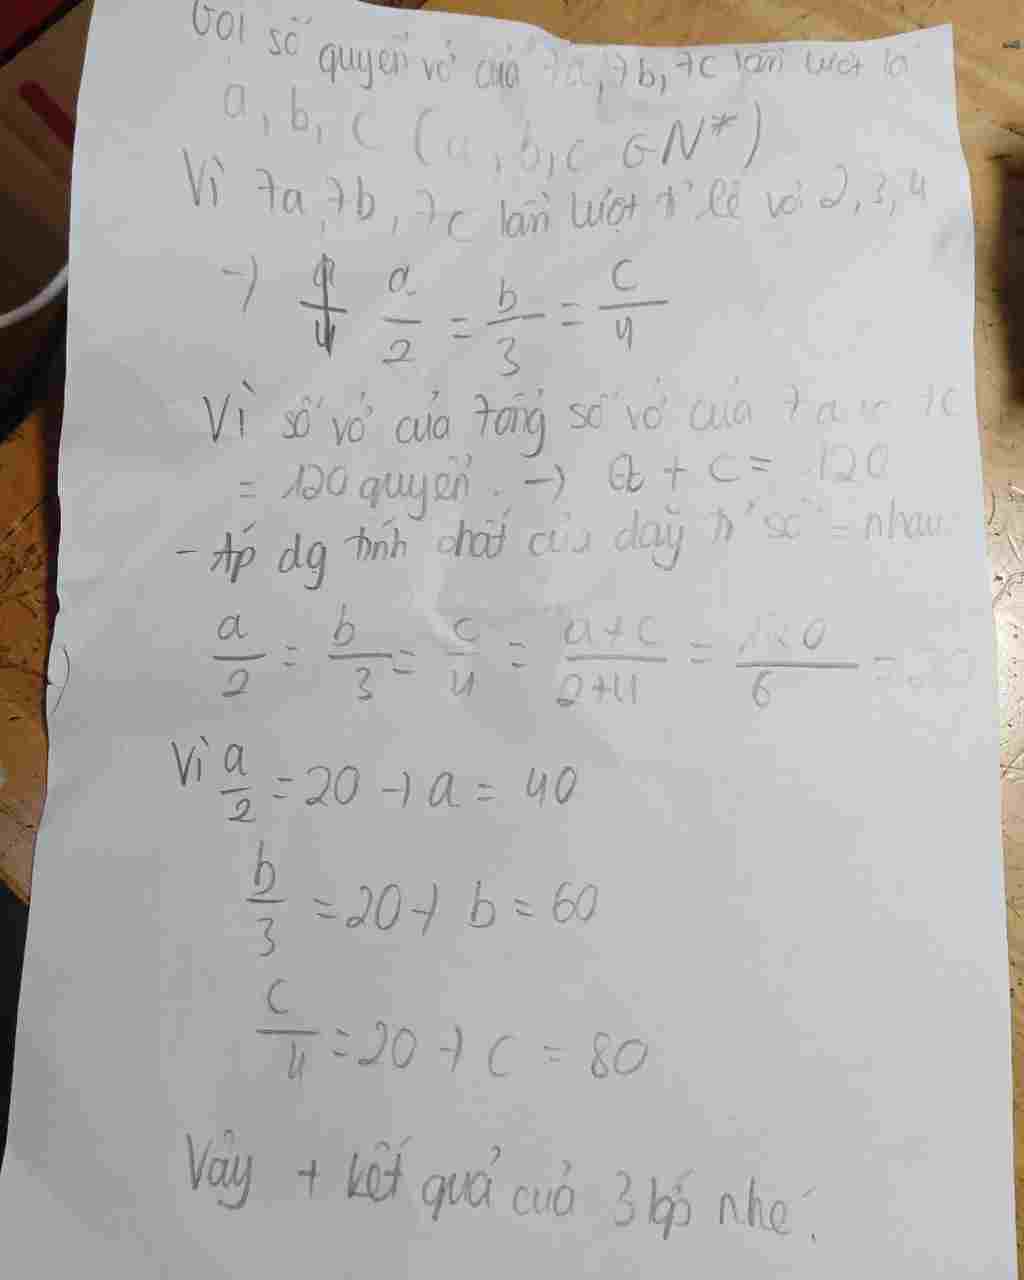 Gọi số quyển vở của 7a, 7b, 7c lần lượt là
a, b, c (a, b, c ∈ N*)
Vì 7a, 7b, 7c lần lượt tỉ lệ với 2, 3, 4
→) a/2 = b/3 = c/4
Vì số vở của tổng số vở của 7a 7c
= 120 quyển. →) a + c = 120
- Áp dg tính chất của dãy tỉ số = nhau:
a/2 = b/3 = c/4 = a+c/2+4 = 120/6 = 20
Vì a/2 = 20 → a = 40
b/3 = 20 → b = 60
c/4 = 20 → c = 80
Vậy + kết quả của 3 nhé.